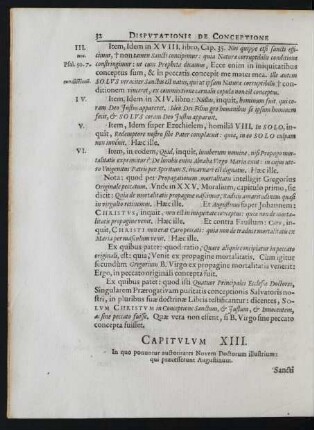 32 DISPUTATIONIS DE CONCEPTIONE
III. Item, Idem in XVIII. libro, Cap. 35. Nos quippe etsi sancti effi-
cimur, non tamen sancti nascimur: quia Naturæ corruptibilis conditione
Psal. 50. 7. constringimur: ut cum Propheta dicamus, Ecce enim in iniquitatibus
conceptus sum, & in peccatis concepit me mater mea. Ille autem
SOLVS veraciter Sanctus natus est, qui
conditionem, ex commixtione carnalis copulæ non est conceptus.
IV. Item, Idem in XIV. libro: Nullus, inquit, hominum fuit, qui co-
ram Deo Iustus appareret. Idcirco Dei Filius pro hominibus se ipsum hominem
fecit, & SOLVS coram Deo Iustus apparuit.
V. Item, Idem super Ezechielem, homiliâ VIII. in SOLO, in-
quit, Redemptore nostro sibi Pater complacuit: quia, in eo SOLO culpam
non invenit. Hæc ille.
VI. Item, in eodem, Quid, inquit,
talitatis exprimitur? De
to Vnigenitus Patris per Spiritum S. incarnatus est dignatus. Hæc ille.
Nota: quod per Propaginem mortalitatis intelligit Gregorius
Originale peccatum. Vnde in XXV. Moralium, capitulo primo, sic
dicit: Quia de mortalitate propaginis
in virgulto retinemus. Hæc ille. Et Augustinus super Iohannem:
CHRISTVS, inquit, non est in iniquitatibus conceptus: quia non de morta-
litate propaginis venit. Hæc ille. Et contra Faustum: Caro, in-
quit, CHRISTI venerat Caro peccati: quia non de traduce mortalitatis ex
Maria per masculum venit. Hæc ille.
Ex quibus patet: quod ratio, Quare aliquis concipiatur in peccato
originali, est: quia, Venit ex propagine mortalitatis. Cum igitur
secundum Gregorium B. Virgo ex propagine mortalitatis venerit:
Ergo, in peccato originali concepta fuit.
Ex quibus patet: quod isti Quatuor Principales Ecclesiæ Doctores,
Singularem Prærogativam puritatis conceptionis Salvatoris no-
stri, in pluribus suæ doctrinæ Libris testificantur: dicentes, SO-
LVM CHRISTVM in Conceptione Sanctum, & Iustum, & Innocentem,
ac sine peccato fuisse. Quæ vera non essent, si B. Virgo sine peccato
concepta fuisset.
CAPITVLVM XIII.
In quo ponuntur authoritates Novem Doctorum illustrium:
qui præcesserunt Augustinum.
Sancti